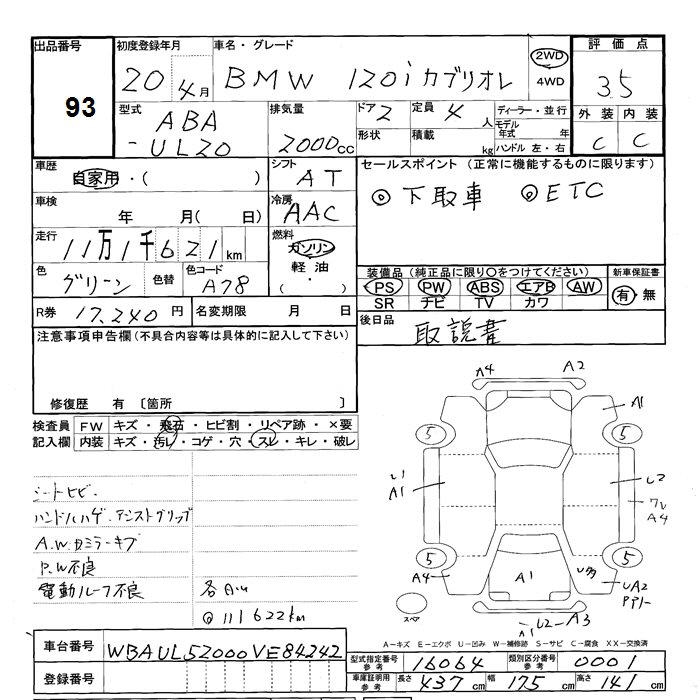 出品番号
93
初度登録年月
20 4月
車名・グレード
BMW 120i カブリオレ
2WD
4WD
評価点
3.5
外装 内装
C C
型式
ABA
-UL20
排気量
2000cc
ドア 2
形状
定員 4人
積載 kg
ディーラー・並行
モデル年式 年
ハンドル 左・右
車歴
自家用・( )
シフト
AT
車検
年 月( 日)
冷房
AAC
走行
11万1千621km
燃料
ガソリン
軽油
( ・ )
色
グリーン
色替
色コード
A78
セールスポイント(正常に機能するものに限ります)
◎下取車 ◎ETC
装備品(純正品に限り○をつけてください)
PS PW ABS エアB AW
SR ナビ TV カワ
新車保証書
有・無
R券 17,240円
名変期限 月 日
後日品
取説書
注意事項申告欄(不具合内容等は具体的に記入して下さい)
修復歴 有 [箇所 ]
検査員記入欄
FW キズ・飛石・ヒビ割・リペア跡・×要
内装 キズ・汚れ・コゲ・穴・スレ・キレ・破レ
シートヒビ.
ハンドルハゲ.アシストグリップ
A.W.カミラーキズ
P.W不良
電動ルーフ不良
各AU
@111622km
A4 A2
A1
5 5
L1
A1
L2
ワレ
A4
5 5
A4
A1
U3
UA2
スペア
L2-A3
A1
A－キズ E－エクボ U－凹み W－補修跡 S－サビ C－腐食 XX－交換済
車台番号
WBAUL52000VE84242
登録番号
型式指定番号参考
16064
類別区分番号参考
0001
車庫証明用参考
長さ 437cm 幅 175cm 高さ 141cm